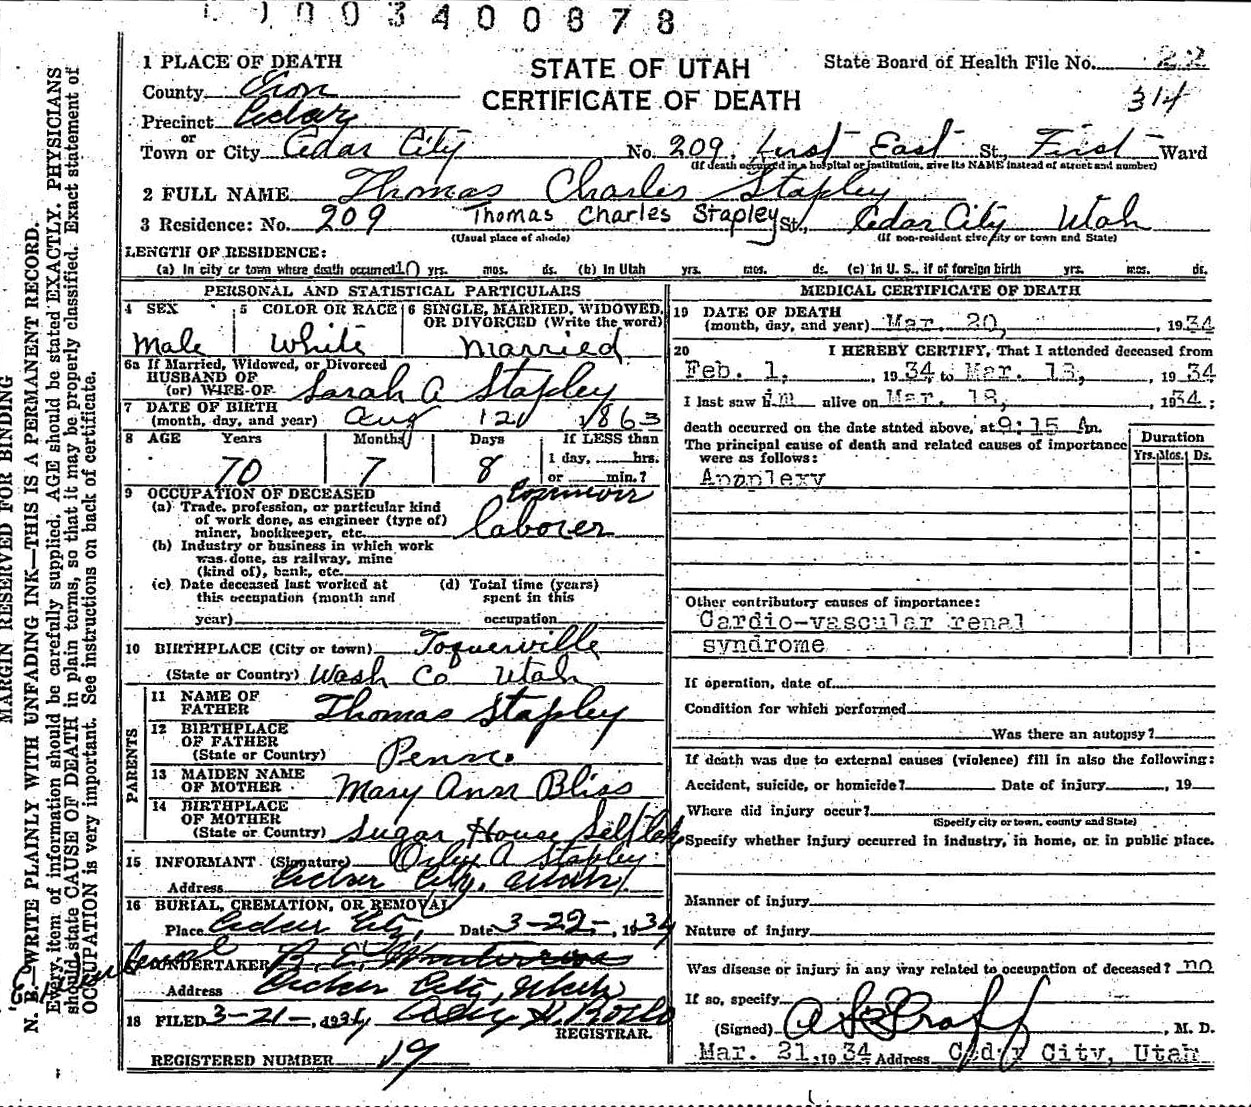 003400878
MARGIN RESERVED FOR BINDING
N. B.—WRITE PLAINLY WITH UNFADING INK—THIS IS A PERMANENT RECORD.
Every item of information should be carefully supplied. AGE should be stated EXACTLY. PHYSICIANS
should state CAUSE OF DEATH in plain terms, so that it may be properly classified. Exact statement of
OCCUPATION is very important. See instructions on back of certificate.
STATE OF UTAH
CERTIFICATE OF DEATH
State Board of Health File No. 22
314
1 PLACE OF DEATH
County Iron
Precinct Cedar
or
Town or City Cedar City No. 209 First East St., First Ward
(If death occurred in a hospital or institution, give its NAME instead of street and number)
2 FULL NAME Thomas Charles Stapley
3 Residence: No. 209 Thomas Charles Stapley St., Cedar City Utah
(Usual place of abode) (If non-resident give city or town and State)
LENGTH OF RESIDENCE:
(a) In city or town where death occurred 10 yrs. mos. ds. (b) In Utah yrs. mos. ds. (c) In U. S., if of foreign birth yrs. mos. ds.
PERSONAL AND STATISTICAL PARTICULARS
4 SEX 5 COLOR OR RACE 6 SINGLE, MARRIED, WIDOWED,
OR DIVORCED (Write the word)
Male White Married
6a If Married, Widowed, or Divorced
HUSBAND OF
(or) WIFE OF Sarah A Stapley
7 DATE OF BIRTH
(month, day, and year) Aug 12 1863
8 AGE Years Months Days If LESS than
1 day, hrs.
70 7 8 or min.?
9 OCCUPATION OF DECEASED
(a) Trade, profession, or particular kind
of work done, as engineer (type of)
miner, bookkeeper, etc. Common
laborer
(b) Industry or business in which work
was done, as railway, mine
(kind of), bank, etc.
(c) Date deceased last worked at
this occupation (month and
year)
(d) Total time (years)
spent in this
occupation
10 BIRTHPLACE (City or town) Toquerville
(State or Country) Wash Co Utah
PARENTS
11 NAME OF
FATHER Thomas Stapley
12 BIRTHPLACE
OF FATHER
(State or Country) Penn.
13 MAIDEN NAME
OF MOTHER Mary Ann Bliss
14 BIRTHPLACE
OF MOTHER
(State or Country) Sugar House Salt Lake
15 INFORMANT (Signature) A Stapley
Address Cedar City, Utah
16 BURIAL, CREMATION, OR REMOVAL
Place Cedar City, Date 3-22-, 1934
UNDERTAKER
Address Cedar City, Utah
18 FILED 3-21-, 1934
REGISTRAR.
REGISTERED NUMBER 19
MEDICAL CERTIFICATE OF DEATH
19 DATE OF DEATH
(month, day, and year) Mar. 20, , 1934
20 I HEREBY CERTIFY, That I attended deceased from
Feb. 1, 1934 to Mar. 18, , 1934
I last saw him alive on Mar. 18, , 1934;
death occurred on the date stated above, at 9:15 A m.
The principal cause of death and related causes of importance
were as follows:
Duration
Yrs. Mos. Ds.
Apoplexy
Other contributory causes of importance:
Cardio-vascular renal
syndrome
If operation, date of
Condition for which performed
Was there an autopsy?
If death was due to external causes (violence) fill in also the following:
Accident, suicide, or homicide? Date of injury , 19
Where did injury occur?
(Specify city or town, county and State)
Specify whether injury occurred in industry, in home, or in public place.
Manner of injury
Nature of injury
Was disease or injury in any way related to occupation of deceased? no
If so, specify
(Signed) , M. D.
Mar. 21, 1934 Address Cedar City, Utah